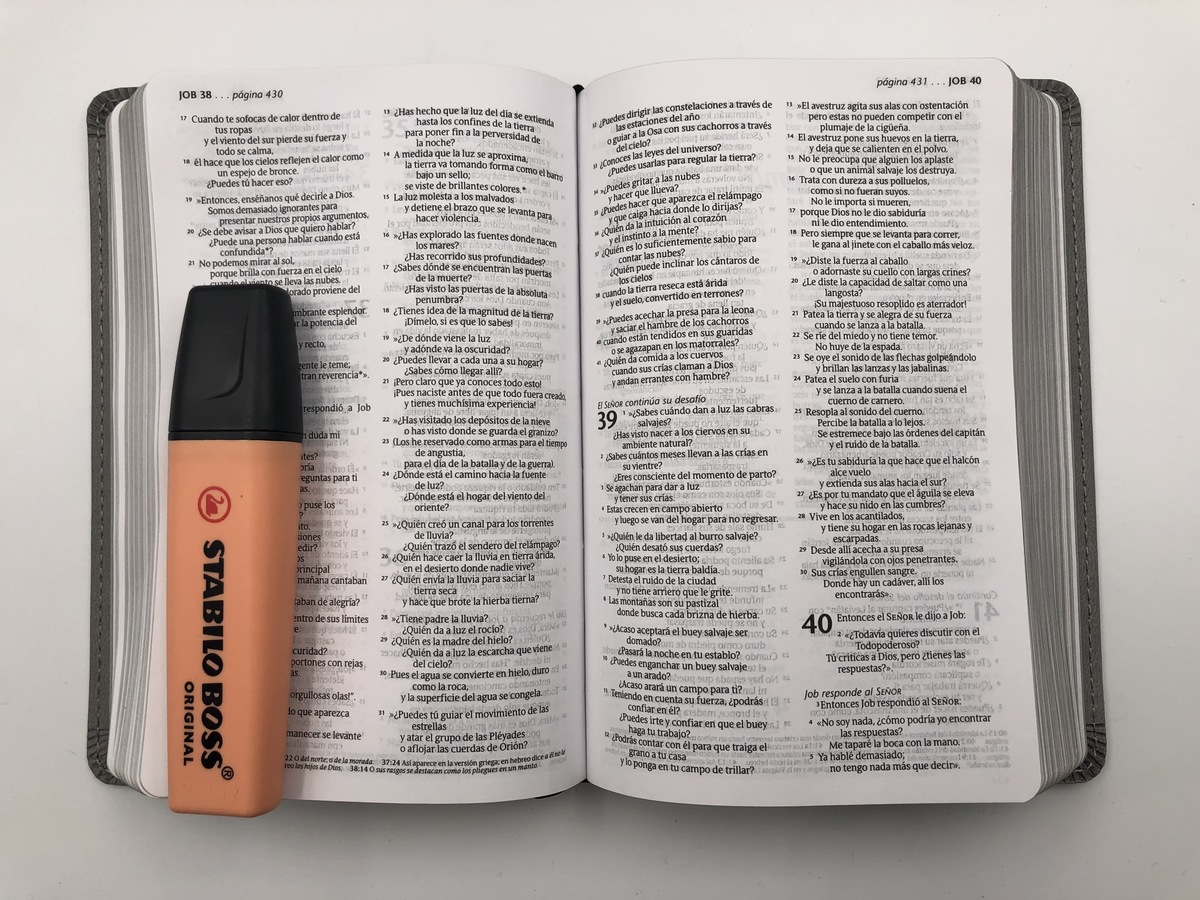 JOB 38 . . . página 430
17 Cuando te sofocas de calor dentro de
tus ropas
y el viento del sur pierde su fuerza y
todo se calma,
18 él hace que los cielos reflejen el calor como
un espejo de bronce.
¿Puedes tú hacer eso?
19 »Entonces, enséñanos qué decirle a Dios.
Somos demasiado ignorantes para
presentar nuestros propios argumentos.
20 ¿Se debe avisar a Dios que quiero hablar?
¿Puede una persona hablar cuando está
confundida*?
21 No podemos mirar al sol,
porque brilla con fuerza en el cielo
cuando el viento se lleva las nubes.
orado proviene del
mbrante esplendor.
r la potencia del
y recto,
gente le teme;
stran reverencia*».
respondió a Job
n duda mi
ntes?
oría
eguntas para ti
as.
puse los
to.
siones
edir?
s
principal
mañana cantaban
taban de alegría?
entro de sus límites
re
curidad?
portones con rejas
as.
orgullosas olas!”.
do que aparezca
manecer se levante
13 ¿Has hecho que la luz del día se extienda
hasta los confines de la tierra
para poner fin a la perversidad de
la noche?
14 A medida que la luz se aproxima,
la tierra va tomando forma como el barro
bajo un sello;
se viste de brillantes colores.*
15 La luz molesta a los malvados
y detiene el brazo que se levanta para
hacer violencia.
16 »¿Has explorado las fuentes donde nacen
los mares?
¿Has recorrido sus profundidades?
17 ¿Sabes dónde se encuentran las puertas
de la muerte?
¿Has visto las puertas de la absoluta
penumbra?
18 ¿Tienes idea de la magnitud de la tierra?
¡Dímelo, si es que lo sabes!
19 »¿De dónde viene la luz
y adónde va la oscuridad?
20 ¿Puedes llevar a cada una a su hogar?
¿Sabes cómo llegar allí?
21 ¡Pero claro que ya conoces todo esto!
¡Pues naciste antes de que todo fuera creado,
y tienes muchísima experiencia!
22 »¿Has visitado los depósitos de la nieve
o has visto donde se guarda el granizo?
23 (Los he reservado como armas para el tiempo
de angustia,
para el día de la batalla y de la guerra).
24 ¿Dónde está el camino hacia la fuente
de luz?
¿Dónde está el hogar del viento del
oriente?
25 »¿Quién creó un canal para los torrentes
de lluvia?
¿Quién trazó el sendero del relámpago?
26 ¿Quién hace caer la lluvia en tierra árida,
en el desierto donde nadie vive?
27 ¿Quién envía la lluvia para saciar la
tierra seca
y hace que brote la hierba tierna?
28 »¿Tiene padre la lluvia?
¿Quién da a luz el rocío?
29 ¿Quién es la madre del hielo?
¿Quién da a luz la escarcha que viene
del cielo?
30 Pues el agua se convierte en hielo, duro
como la roca,
y la superficie del agua se congela.
31 »¿Puedes tú guiar el movimiento de las
estrellas
y atar el grupo de las Pléyades
o aflojar las cuerdas de Orión?
22 O del norte; o de la morada. 37:24 Así aparece en la versión griega; en hebreo dice
reo los hijos de Dios. 38:14 O sus rasgos se destacan como los pliegues en un manto.
STABILO BOSS®
ORIGINAL
página 431 . . . JOB 40
32 ¿Puedes dirigir las constelaciones a través de
las estaciones del año
o guiar a la Osa con sus cachorros a través
del cielo?
33 ¿Conoces las leyes del universo?
¿Puedes usarlas para regular la tierra?
34 »¿Puedes gritar a las nubes
y hacer que llueva?
35 ¿Puedes hacer que aparezca el relámpago
y que caiga hacia donde lo dirijas?
36 ¿Quién da la intuición al corazón
y el instinto a la mente?
37 ¿Quién es lo suficientemente sabio para
contar las nubes?
¿Quién puede inclinar los cántaros de
los cielos
38 cuando la tierra reseca está árida
y el suelo, convertido en terrones?
39 »¿Puedes acechar la presa para la leona
y saciar el hambre de los cachorros
40 cuando están tendidos en sus guaridas
o se agazapan en los matorrales?
41 ¿Quién da comida a los cuervos
cuando sus crías claman a Dios
y andan errantes con hambre?
El SEÑOR continúa su desafío
39 1 »¿Sabes cuándo dan a luz las cabras
salvajes?
¿Has visto nacer a los ciervos en su
ambiente natural?
2 ¿Sabes cuántos meses llevan a las crías en
su vientre?
¿Eres consciente del momento de parto?
3 Se agachan para dar a luz
y tener sus crías.
4 Estas crecen en campo abierto
y luego se van del hogar para no regresar.
5 »¿Quién le da libertad al burro salvaje?
¿Quién desató sus cuerdas?
6 Yo lo puse en el desierto;
su hogar es la tierra baldía.
7 Detesta el ruido de la ciudad
y no tiene arriero que le grite.
8 Las montañas son su pastizal
donde busca cada brizna de hierba.
9 »¿Acaso aceptará el buey salvaje ser
domado?
¿Pasará la noche en tu establo?
10 ¿Puedes enganchar un buey salvaje
a un arado?
¿Acaso arará un campo para ti?
11 Teniendo en cuenta su fuerza, ¿podrás
confiar en él?
¿Puedes irte y confiar en que el buey
haga tu trabajo?
12 ¿Podrás contar con él para que traiga el
grano a tu casa
y lo ponga en tu campo de trillar?
13 »El avestruz agita sus alas con ostentación
pero estas no pueden competir con el
plumaje de la cigüeña.
14 El avestruz pone sus huevos en la tierra,
y deja que se calienten en el polvo.
15 No le preocupa que alguien los aplaste
o que un animal salvaje los destruya.
16 Trata con dureza a sus polluelos,
como si no fueran suyos.
No le importa si mueren,
17 porque Dios no le dio sabiduría
ni le dio entendimiento.
18 Pero siempre que se levanta para correr,
le gana al jinete con el caballo más veloz.
19 »¿Diste la fuerza al caballo
o adornaste su cuello con largas crines?
20 ¿Le diste la capacidad de saltar como una
langosta?
¡Su majestuoso resoplido es aterrador!
21 Patea la tierra y se alegra de su fuerza
cuando se lanza a la batalla.
22 Se ríe del miedo y no tiene temor.
No huye de la espada.
23 Se oye el sonido de las flechas golpeándolo
y brillan las lanzas y las jabalinas.
24 Patea el suelo con furia
y se lanza a la batalla cuando suena el
cuerno de carnero.
25 Resopla al sonido del cuerno.
Percibe la batalla a lo lejos.
Se estremece bajo las órdenes del capitán
y el ruido de la batalla.
26 »¿Es tu sabiduría la que hace que el halcón
alce vuelo
y extienda sus alas hacia el sur?
27 ¿Es por tu mandato que el águila se eleva
y hace su nido en las cumbres?
28 Vive en los acantilados,
y tiene su hogar en las rocas lejanas y
escarpadas.
29 Desde allí acecha a su presa
vigilándola con ojos penetrantes.
30 Sus crías engullen sangre.
Donde hay un cadáver, allí los
encontrarás».
40 Entonces el SEÑOR le dijo a Job:
2 «¿Todavía quieres discutir con el
Todopoderoso?
Tú criticas a Dios, pero ¿tienes las
respuestas?».
Job responde al SEÑOR
3 Entonces Job respondió al SEÑOR:
4 «No soy nada, ¿cómo podría yo encontrar
las respuestas?
Me taparé la boca con la mano.
5 Ya hablé demasiado;
no tengo nada más que decir».